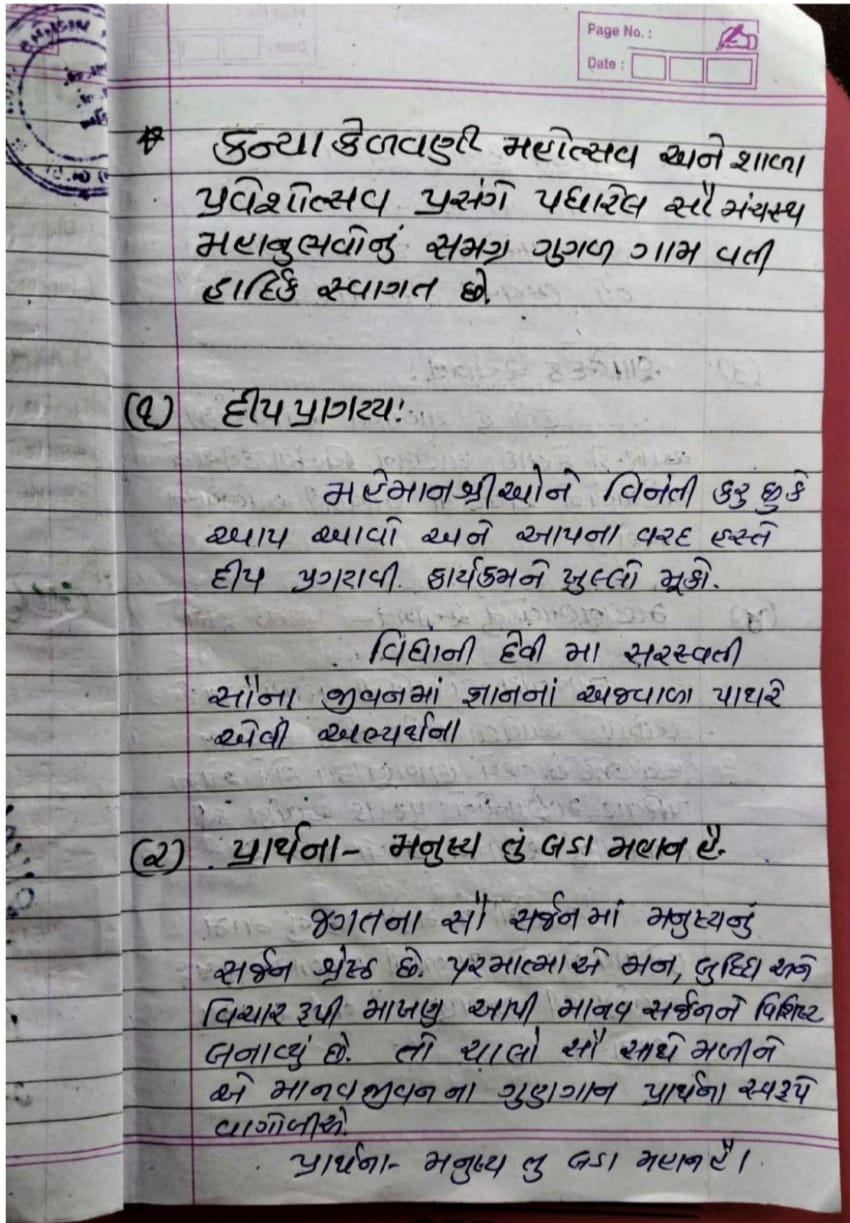 Page No. :
Date :
કન્યા કેળવણી મહોત્સવ અને શાળા
પ્રવેશોત્સવ પ્રસંગે પધારેલ સૌ મંચસ્થ
મહાનુભવોનું સમગ્ર ગુગળ ગામ વતી
હાર્દિક સ્વાગત છે.
(૧) દીપ પ્રાગટ્ય:
મહેમાનશ્રીઓને વિનંતી કરુ છુ કે
આપ આવો અને આપના વરદ હસ્તે
દીપ પ્રગટાવી કાર્યક્રમને ખુલ્લો મૂકો.
વિદ્યાની દેવી મા સરસ્વતી
સૌના જીવનમાં જ્ઞાનનાં અજવાળા પાથરે
એવી અભ્યર્થના
(૨) પ્રાર્થના- મનુષ્ય તું બડા મહાન હૈ.
જગતના સૌ સર્જનમાં મનુષ્યનું
સર્જન શ્રેષ્ઠ છે. પરમાત્માએ મન, બુદ્ધિ અને
વિચાર રૂપી માખણ આપી માનવ સર્જનને વિશિષ્ટ
બનાવ્યું છે. તો ચાલો સૌ સાથે મળીને
એ માનવજીવનના ગુણગાન પ્રાર્થના સ્વરૂપે
વાગોળીએ.
પ્રાર્થના- મનુષ્ય તુ બડા મહાન હૈ।